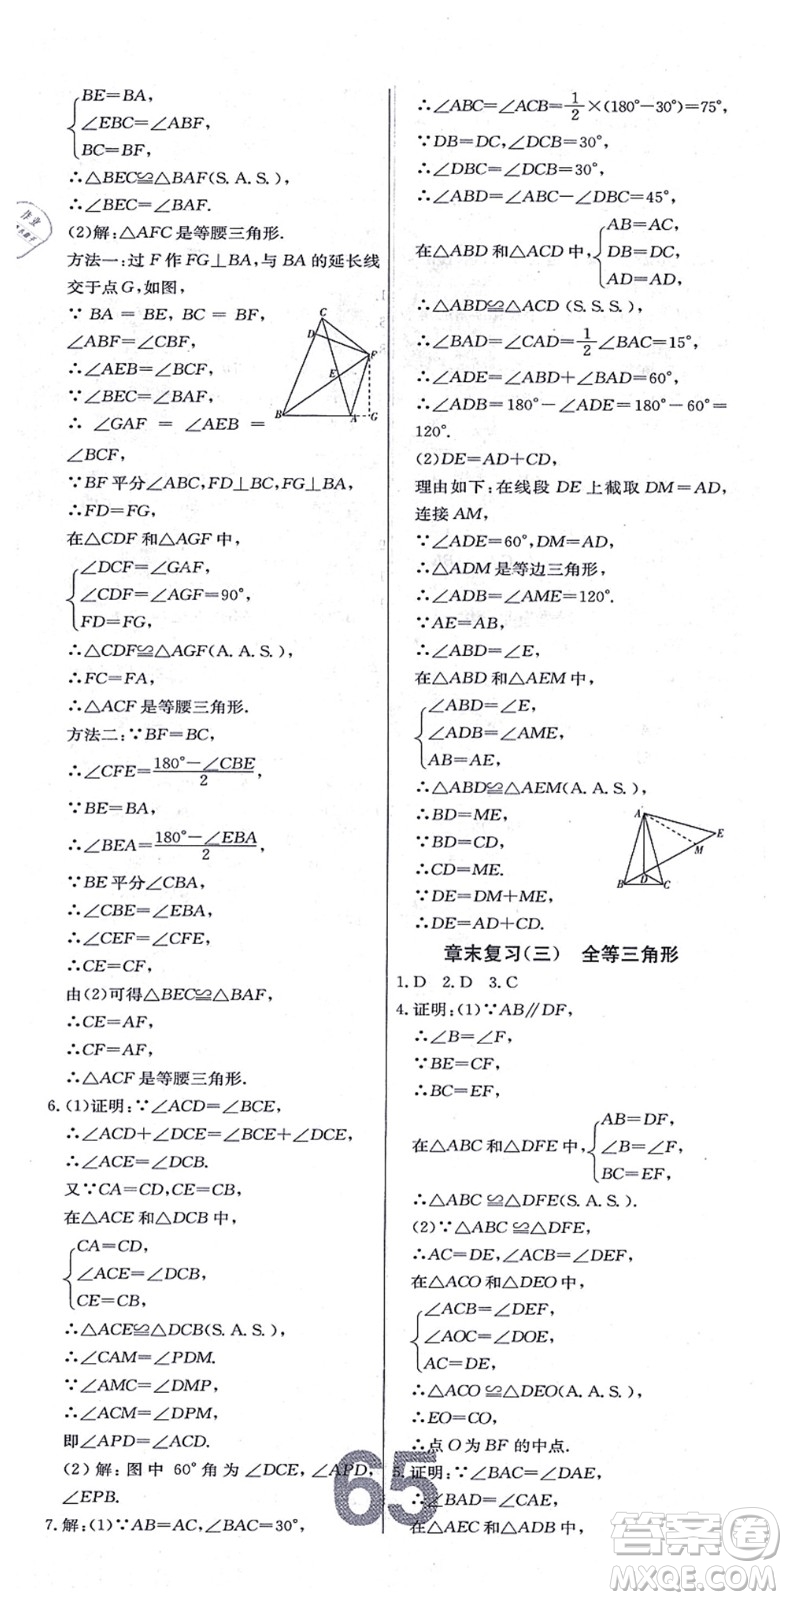 BE=BA,
∠EBC=∠ABF,
BC=BF,
∴△BEC≌△BAF(S.A.S.),
∴∠BEC=∠BAF.
(2)解:△AFC是等腰三角形.
方法一:过F作FG⊥BA,与BA的延长线
交于点G,如图,
∵BA=BE,BC=BF,
∠ABF=∠CBF,
∴∠AEB=∠BCF,
∵∠BEC=∠BAF,
∴∠GAF=∠AEB=
∠BCF,
∵BF平分∠ABC,FD⊥BC,FG⊥BA,
∴FD=FG,
在△CDF和△AGF中,
∠DCF=∠GAF,
∠CDF=∠AGF=90°,
FD=FG,
∴△CDF≌△AGF(A.A.S.),
∴FC=FA,
∴△ACF是等腰三角形.
方法二:∵BF=BC,
∴∠CFE=(180°-∠CBE)/2,
∵BE=BA,
∴∠BEA=(180°-∠EBA)/2,
∵BE平分∠CBA,
∴∠CBE=∠EBA,
∴∠CEF=∠CFE,
∴CE=CF,
由(2)可得△BEC≌△BAF,
∴CE=AF,
∴CF=AF,
∴△ACF是等腰三角形.
6.(1)证明:∵∠ACD=∠BCE,
∴∠ACD+∠DCE=∠BCE+∠DCE,
∴∠ACE=∠DCB.
又∵CA=CD,CE=CB,
在△ACE和△DCB中,
CA=CD,
∠ACE=∠DCB,
CE=CB,
∴△ACE≌△DCB(S.A.S.),
∴∠CAM=∠PDM.
∵∠AMC=∠DMP,
∴∠ACM=∠DPM,
即∠APD=∠ACD.
(2)解:图中60°角为∠DCE,∠APD,
∠EPB.
7.解:(1)∵AB=AC,∠BAC=30°,
∴∠ABC=∠ACB=1/2×(180°-30°)=75°,
∵DB=DC,∠DCB=30°,
∴∠DBC=∠DCB=30°,
∴∠ABD=∠ABC-∠DBC=45°,
AB=AC,
在△ABD和△ACD中,DB=DC,
AD=AD,
∴△ABD≌△ACD(S.S.S.),
∴∠BAD=∠CAD=1/2∠BAC=15°,
∴∠ADE=∠ABD+∠BAD=60°,
∴∠ADB=180°-∠ADE=180°-60°=
120°.
(2)DE=AD+CD,
理由如下:在线段DE上截取DM=AD,
连接AM,
∵∠ADE=60°,DM=AD,
∴△ADM是等边三角形,
∴∠ADB=∠AME=120°.
∵AE=AB,
∴∠ABD=∠E,
在△ABD和△AEM中,
∠ABD=∠E,
∠ADB=∠AME,
AB=AE,
∴△ABD≌△AEM(A.A.S.),
∴BD=ME,
∵BD=CD,
∴CD=ME.
∵DE=DM+ME,
∴DE=AD+CD.
章末复习(三) 全等三角形
1.D 2.D 3.C
4.证明:(1)∵AB∥DF,
∴∠B=∠F,
∵BE=CF,
∴BC=EF,
AB=DF,
在△ABC和△DFE中,∠B=∠F,
BC=EF,
∴△ABC≌△DFE(S.A.S.).
(2)∵△ABC≌△DFE,
∴AC=DE,∠ACB=∠DEF,
在△ACO和△DEO中,
∠ACB=∠DEF,
∠AOC=∠DOE,
AC=DE,
∴△ACO≌△DEO(A.A.S.),
∴EO=CO,
∴点O为BF的中点.
5.证明:∵∠BAC=∠DAE,
∴∠BAD=∠CAE,
在△AEC和△ADB中,
65
答案卷